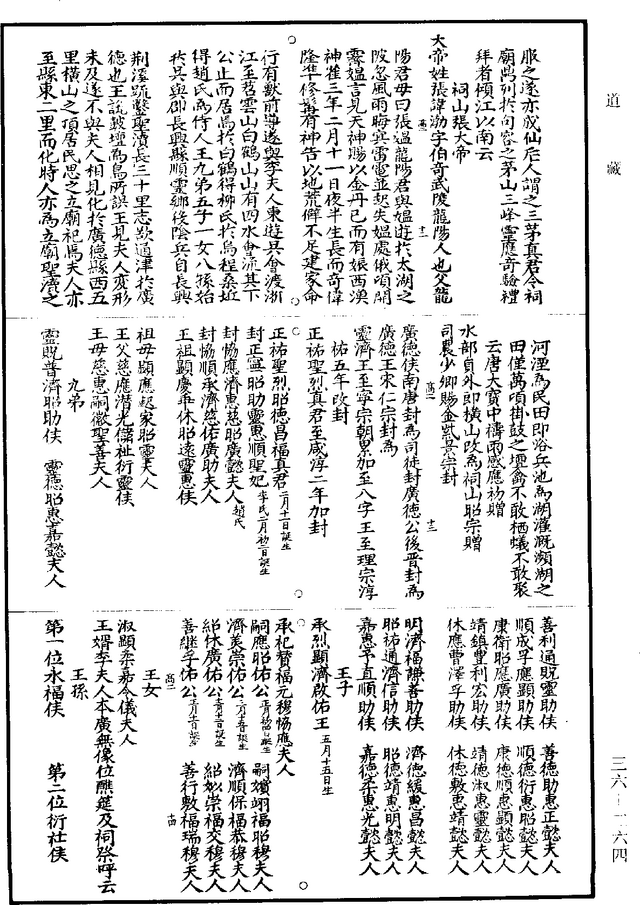 道藏
服之遂亦成仙后人謂之三茅真君令祠
廟焉列於句容之茅山三峰靈應奇驗禮
拜者傾江以南云
祠山張大帝
大帝姓張諱渤字伯奇武陵龍陽人也父龍
陽君母曰張媼龍陽君與媼遊於太湖之
陂忽風雨晦冥雷電並起失媼處俄頃開
霽媼言見天神賜以金丹已而有娠西漢
神雀三年二月十一日夜半生長而奇偉
隆準修髯有神告以地荒僻不足建家命
行有獸前導遂與李夫人東遊具會渡浙
江至苕雲山白鶴山山有四水會流其下
公止而居焉於白鶴得柳氏於烏程桑坵
得趙氏為侍人王九弟五子一女八孫始
於具與郡長興縣順靈鄉後陰兵自長興
荊溪疏鑿聖瀆長三十里志欲通津於廣
德也王詭鼓壇為烏所誤王見夫人變形
未及遂不與夫人相見化於廣德縣西五
里橫山之頂居民思之立廟祀焉夫人亦
至縣東二里而化時人亦為立廟聖瀆之
河湮為民田即浴兵池為湖灌溉瀕湖之
田僅萬頃掛鼓之壇禽不敢栖蟻不敢聚
云唐大寶中禱雨感應初贈
水部員外即橫山改為祠山昭宗贈
司農少卿賜金紫景宗封
廣德侯南唐封為司徒封廣德公後晋封為
廣德王宋仁宗封為
靈濟王至寧宗朝累加至八字王至理宗淳
祐五年改封
正祐聖烈真君至咸淳二年加封
正祐聖烈昭德昌福真君二月十一日誕生
封正寧昭助靈惠順聖妃李氏二月初一日誕生
封協應濟惠慈昭廣懿夫人趙氏
封協順承濟慈佑廣助夫人
王祖顯慶垂休昭遠靈惠侯
祖母顯應起家昭靈夫人
王父慈應潛光儲祉衍靈侯
王母慈惠嗣徽聖善夫人
九弟
靈貺普濟昭助侯 靈德昭惠嘉懿夫人
善利通貺靈助侯 善德助惠正懿夫人
順成孚應顯助侯 順德衍惠昭懿夫人
康衛昭應廣助侯 康德順惠顯懿夫人
靖鎮豐利宏助侯 靖德淑惠靈懿夫人
休應曹澤孚助侯 休德敷惠靖懿夫人
明濟福謙善助侯 濟德緩惠昌懿夫人
昭祐通濟信助侯 昭德靖惠明懿夫人
嘉惠予直順助侯 嘉德柔惠光懿夫人
王子
承烈顯濟啟佑王五月十五日生
承祀贊福元穆協應夫人
嗣應昭佑公 嗣嬪翊福昭穆夫人
濟美崇佑公 濟順保福恭穆夫人
紹休廣佑公 紹妙崇福交穆夫人
善繼孚佑公 善行敷福瑞穆夫人
王女
淑顯柔嘉令儀夫人
王婿李夫人本廣無像位醮筵及祠祭呼云
王孫
第一位永福侯 第二位衍社侯
三六—二六四